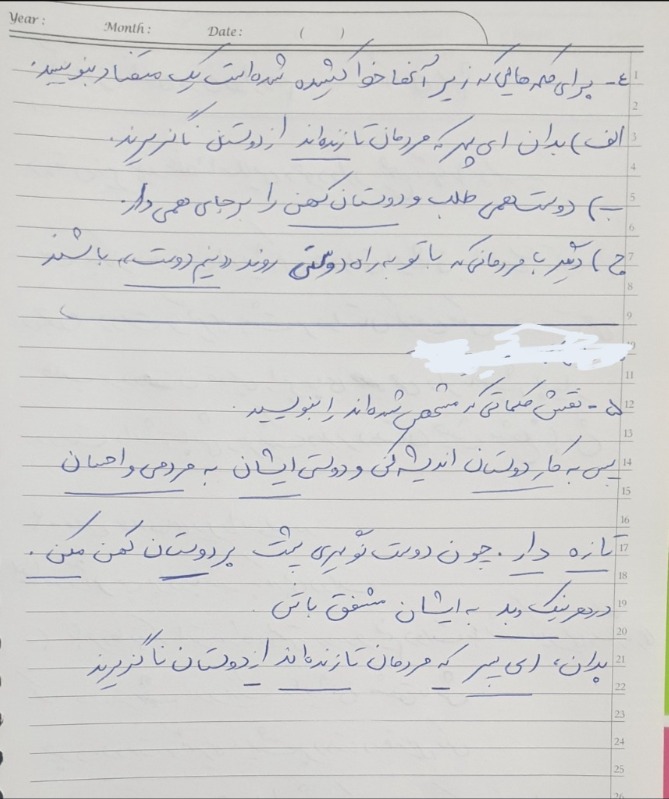 Year: Month: Date: ( )
۴- برای کلمه‌هایی که زیر آنها خط کشیده شده است یک متضاد بنویسید.
الف) بدان ای پسر که مردمان تا زنده‌اند از دوستی ناگزیرند.
ب) دوست همی طلب و دوستان کهن را بر جای همی دار.
ج) دیگر با مردمانی که با تو به راه دوستی روند و نیم دوست باشند
۵- نقش کلماتی که مشخص شده‌اند را بنویسید.
پس به کار دوستان اندیشه کن و دوستی ایشان به مردمی و احسان
تازه دار. چون دوست نو گیری پشت بر دوستان کهن مکن.
در هر نیک و بد به ایشان مشفق باش
بدان، ای پسر که مردمان تا زنده‌اند از دوستان ناگزیرند
1
2
3
4
5
6
7
8
9
11
12
13
14
15
16
17
18
19
20
21
22
23
24
25
26